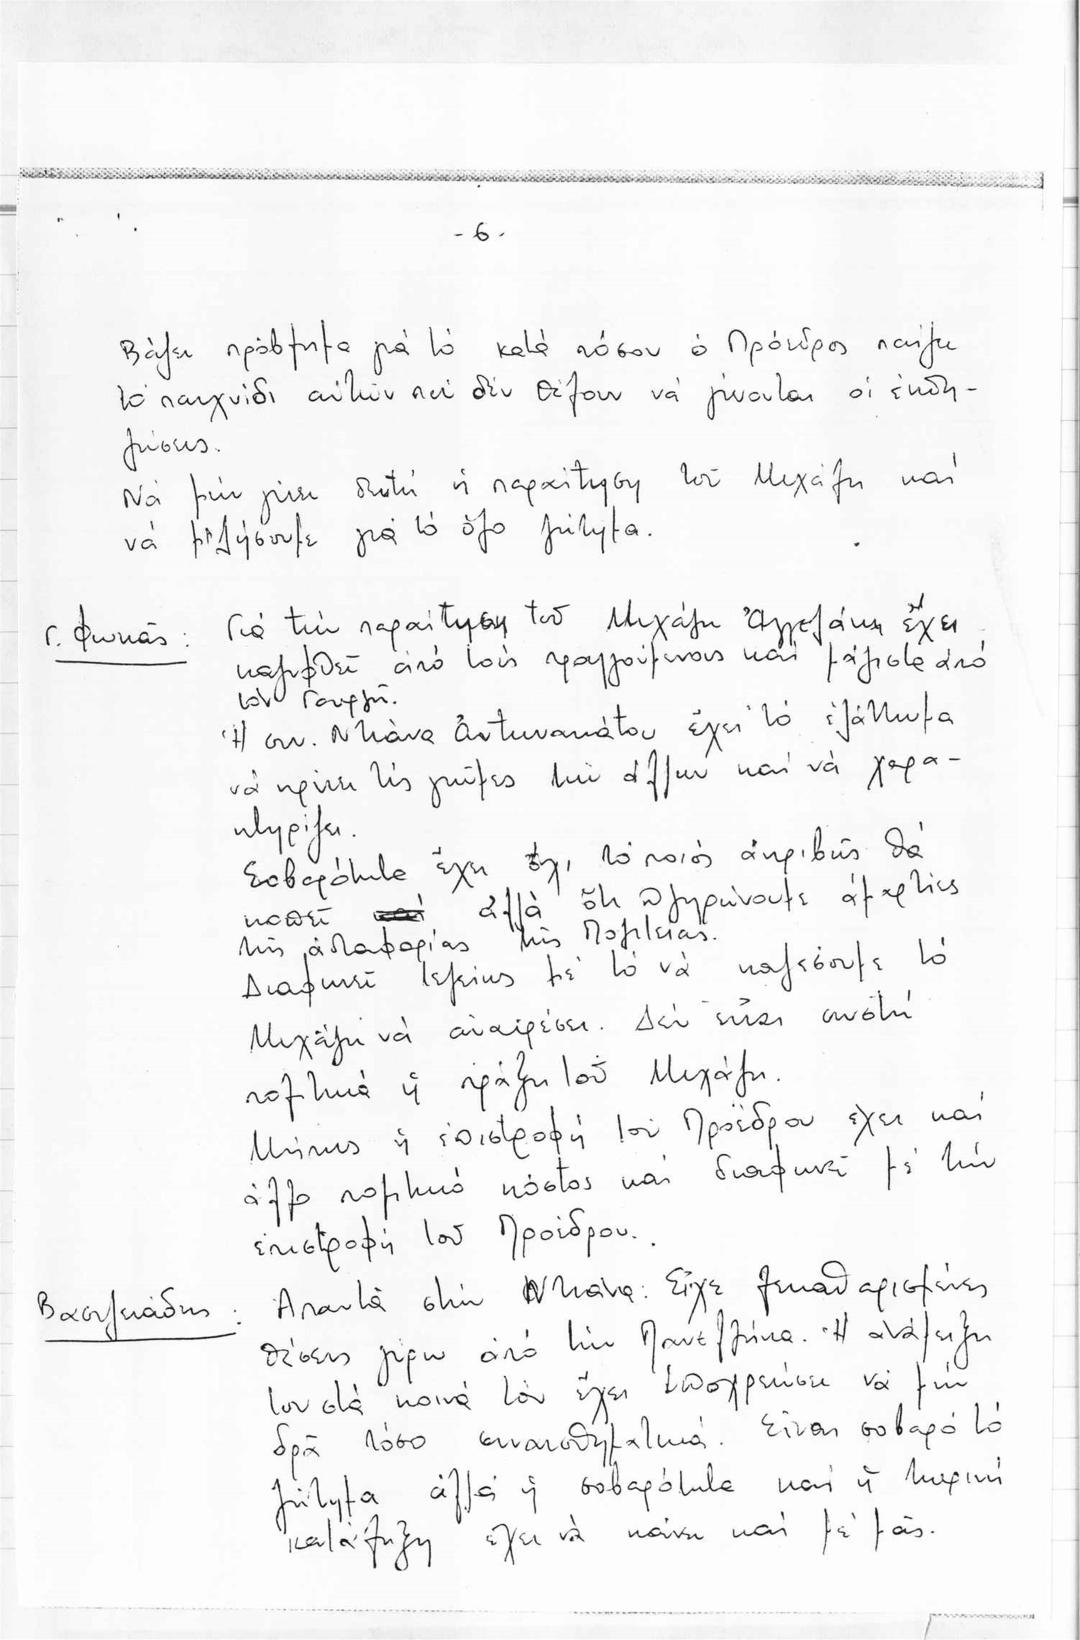 - 6 -
Βάζει πρόβλημα γιά τό κατά πόσον ὁ Πρόεδρος παίζει
τό παιχνίδι αὐτῶν πού δέν θέλουν νά γίνονται οἱ ἐκδη-
λώσεις.
Νά μήν γίνει δεκτή ἡ παραίτηση τοῦ Μιχάλη καί
νά μιλήσουμε γιά τό ὅλο ζήτημα.
Γ. Φωκᾶς: Γιά τήν παραίτηση τοῦ Μιχάλη Ἀγγελάκη ἔχει
καλυφθεῖ ἀπό τούς προηγούμενους καί μάλιστα ἀπό
τόν Γουργῆ.
Ἡ συν. Ντιάνα Ἀντωνακάτου ἔχει τό ἐλάττωμα
νά κρίνει τίς γνῶμες τῶν ἄλλων καί νά χαρα-
κτηρίζει.
Σοβαρότητα ἔχει ὄχι τό ποιός ἀκριβῶς θά
κοπεῖ ἀλλά ὅτι πληρώνουμε ἁμαρτίες
τῆς ἀδιαφορίας τῆς Πολιτείας.
Διαφωνεῖ τελείως μέ τό νά καλέσουμε τό
Μιχάλη νά ἀναιρέσει. Δέν εἶναι σωστή
πολιτικά ἡ πράξη τοῦ Μιχάλη.
Μήπως ἡ ἐπιστροφή τοῦ Προέδρου ἔχει καί
ἄλλο πολιτικό κόστος καί διαφωνεῖ μέ τήν
ἐπιστροφή τοῦ Προέδρου.
Βασιλειάδης: Ἀπαντᾶ στήν Ντιάνα: Εἶχε ξεκαθαρισμένες
θέσεις γύρω ἀπό τήν Πανελλήνια. Ἡ ἀνάμειξη
του στά κοινά τόν ἔχει ὑποχρεώσει νά μήν
δρᾶ τόσο συναισθηματικά. Εἶναι σοβαρό τό
ζήτημα ἀλλά ἡ σοβαρότητα καί ἡ τωρινή
κατάληξη ἔχει νά κάνει καί μέ μᾶς.